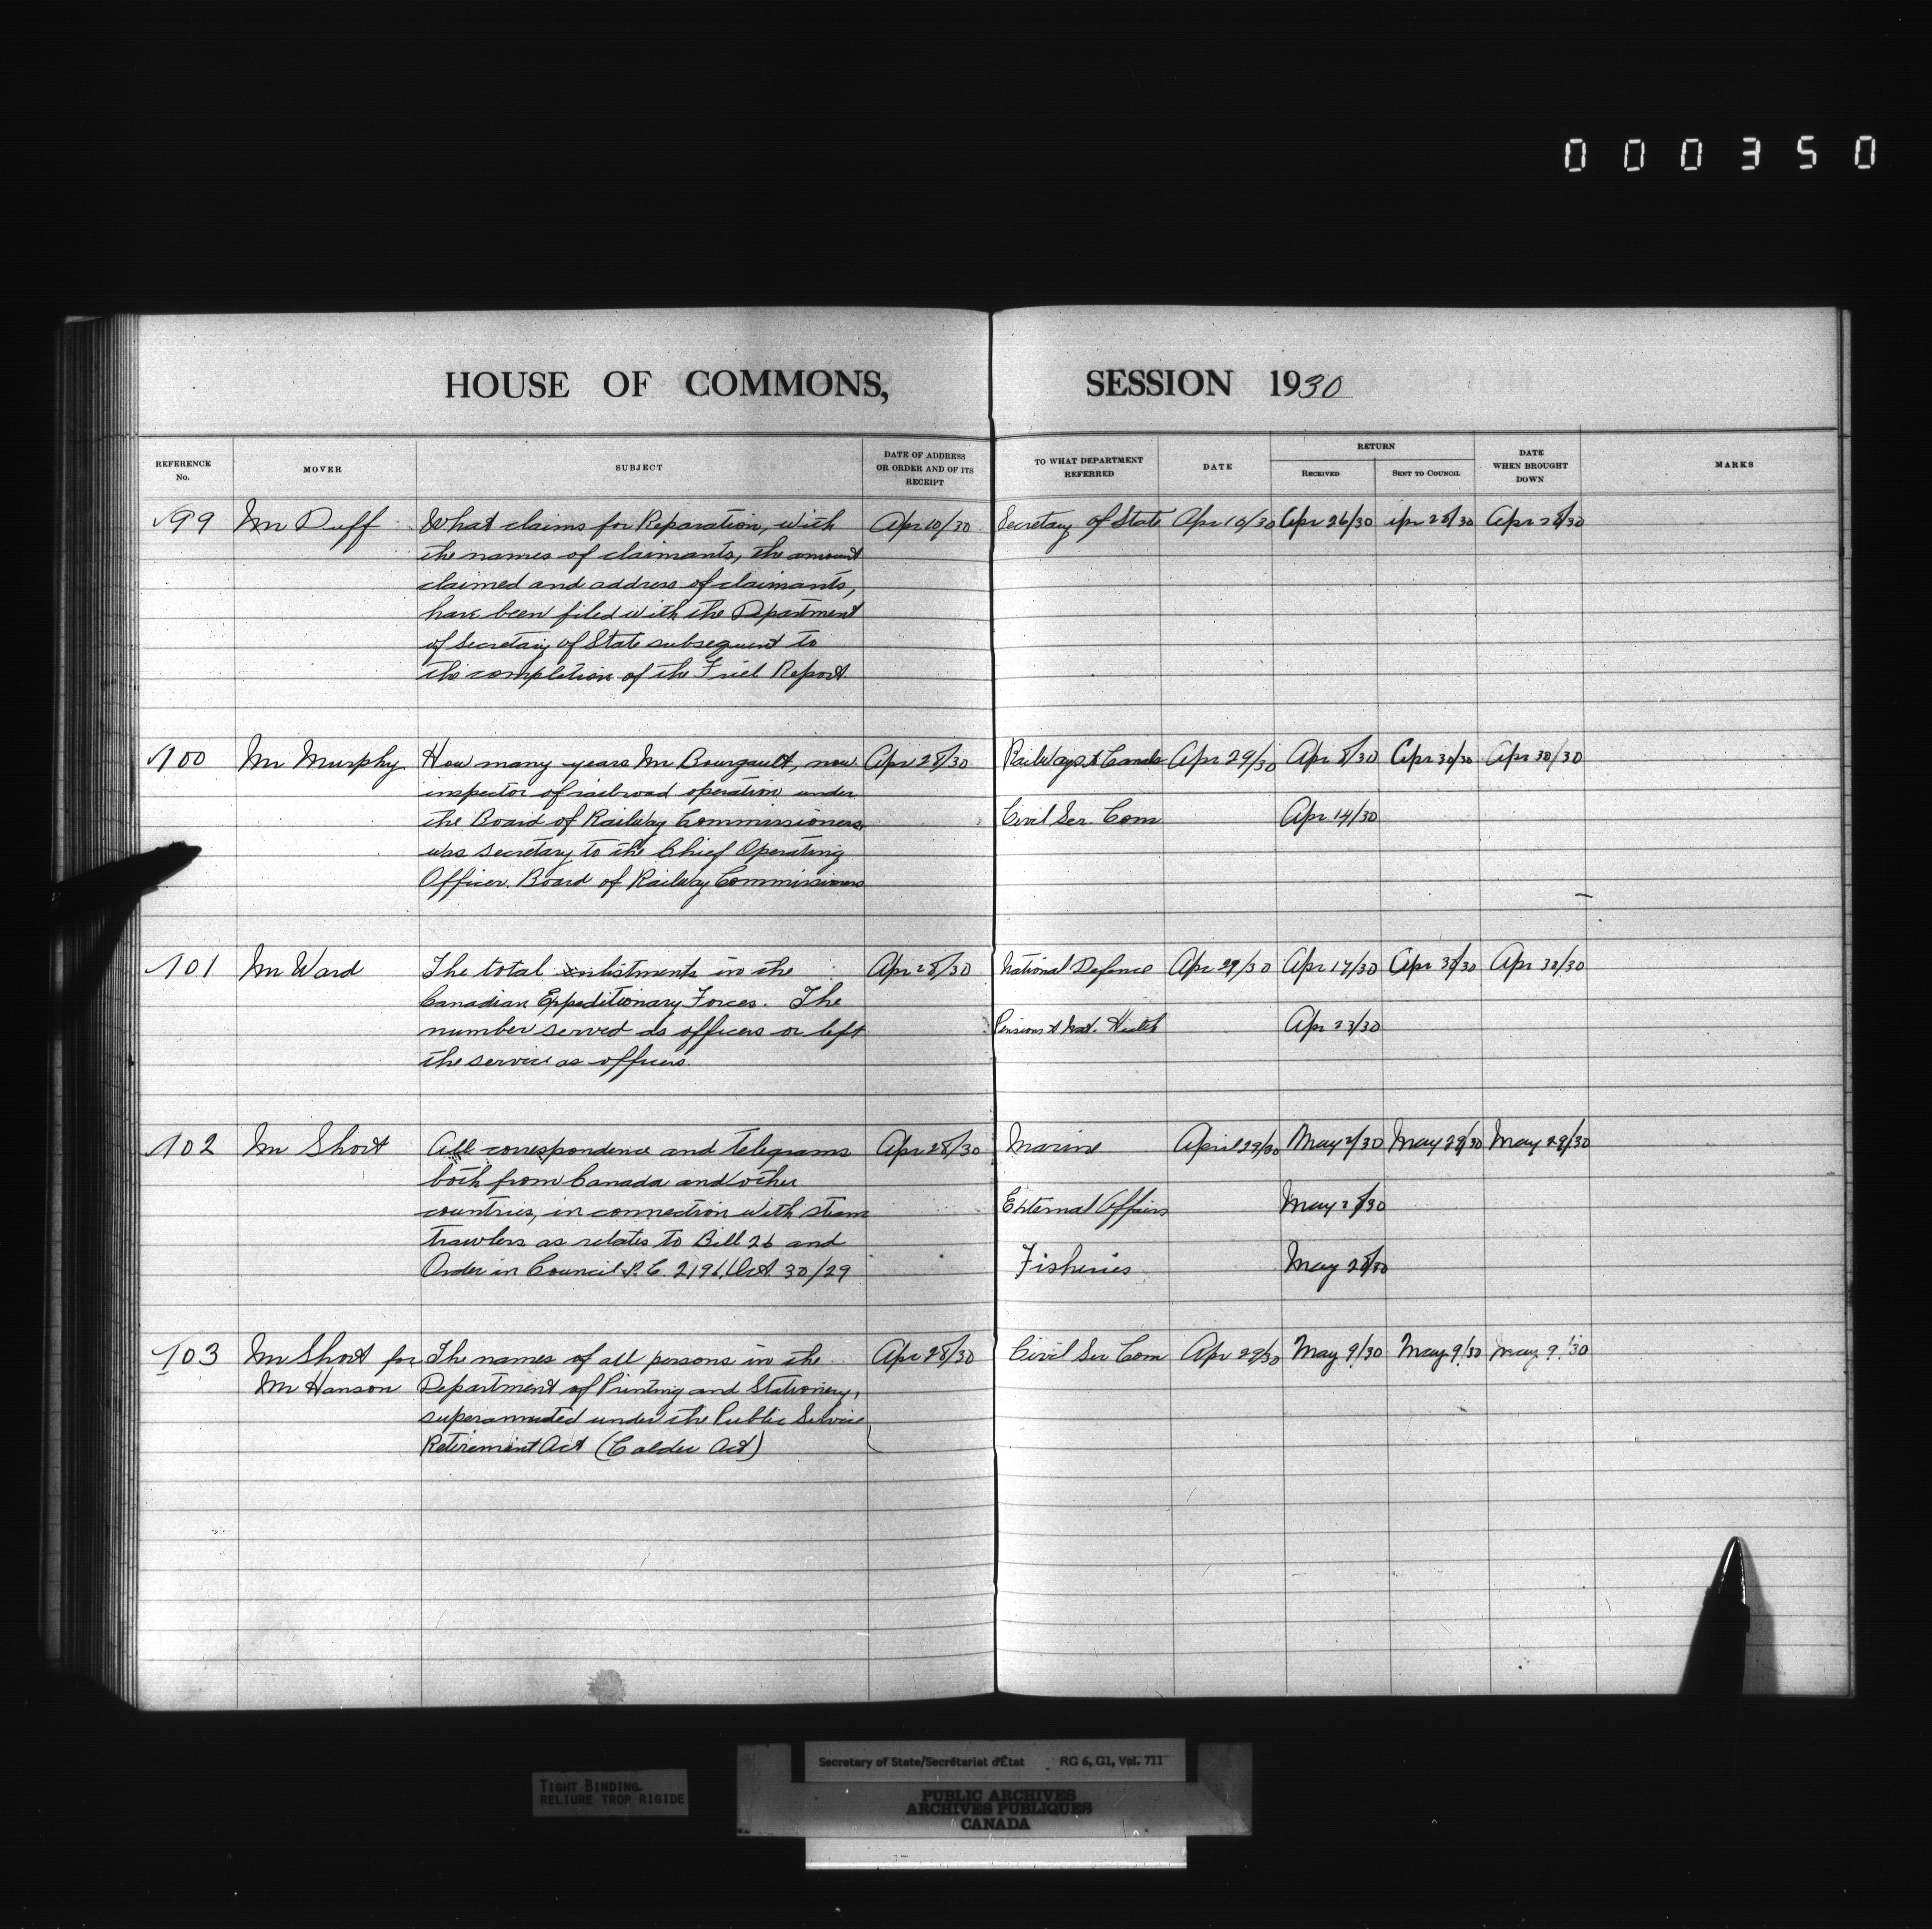 000350
HOUSE OF COMMONS, SESSION 1930
REFERENCE No. MOVER SUBJECT DATE OF ADDRESS OR ORDER AND OF ITS RECEIPT TO WHAT DEPARTMENT REFERRED DATE RETURN RECEIVED SENT TO COUNCIL DATE WHEN BROUGHT DOWN MARKS
99 Mr Duff What claims for Reparation, with Apr 10/30 Secretary of State Apr 10/30 Apr 26/30 Apr 28/30 Apr 28/30
the names of claimants, the amount
claimed and address of claimants,
have been filed with the Department
of Secretary of State subsequent to
the completion of the Friel Report
100 Mr Murphy How many years Mr Bourgault, now Apr 28/30 Railways & Canals Apr 29/30 Apr 8/30 Apr 30/30 Apr 30/30
inspector of railroad operation under
the Board of Railway Commissioners Civil Ser. Com Apr 14/30
was secretary to the Chief Operating
Officer. Board of Railway Commissioners
101 Mr Ward The total enlistments in the Apr 28/30 National Defence Apr 29/30 Apr 17/30 Apr 30/30 Apr 30/30
Canadian Expeditionary Forces. The
number served as officers or left Pensions & Nat. Health Apr 23/30
the service as officers.
102 Mr Short All correspondence and telegrams Apr 28/30 Marine April 29/30 May 2/30 May 29/30 May 29/30
both from Canada and other
countries, in connection with steam External Affairs May 2/30
trawlers as relates to Bill 26 and
Order in Council P.C. 2196, Oct 30/29 Fisheries May 28/30
103 Mr Short for The names of all persons in the Apr 28/30 Civil Ser Com Apr 29/30 May 9/30 May 9/30 May 9/30
Mr Hanson Department of Printing and Stationery,
superannuated under the Public Service
Retirement Act (Calder Act)
Secretary of State/Secrétariat d'État RG 6, G1, Vol. 711
TIGHT BINDING
RELIURE TROP RIGIDE
PUBLIC ARCHIVES
ARCHIVES PUBLIQUES
CANADA